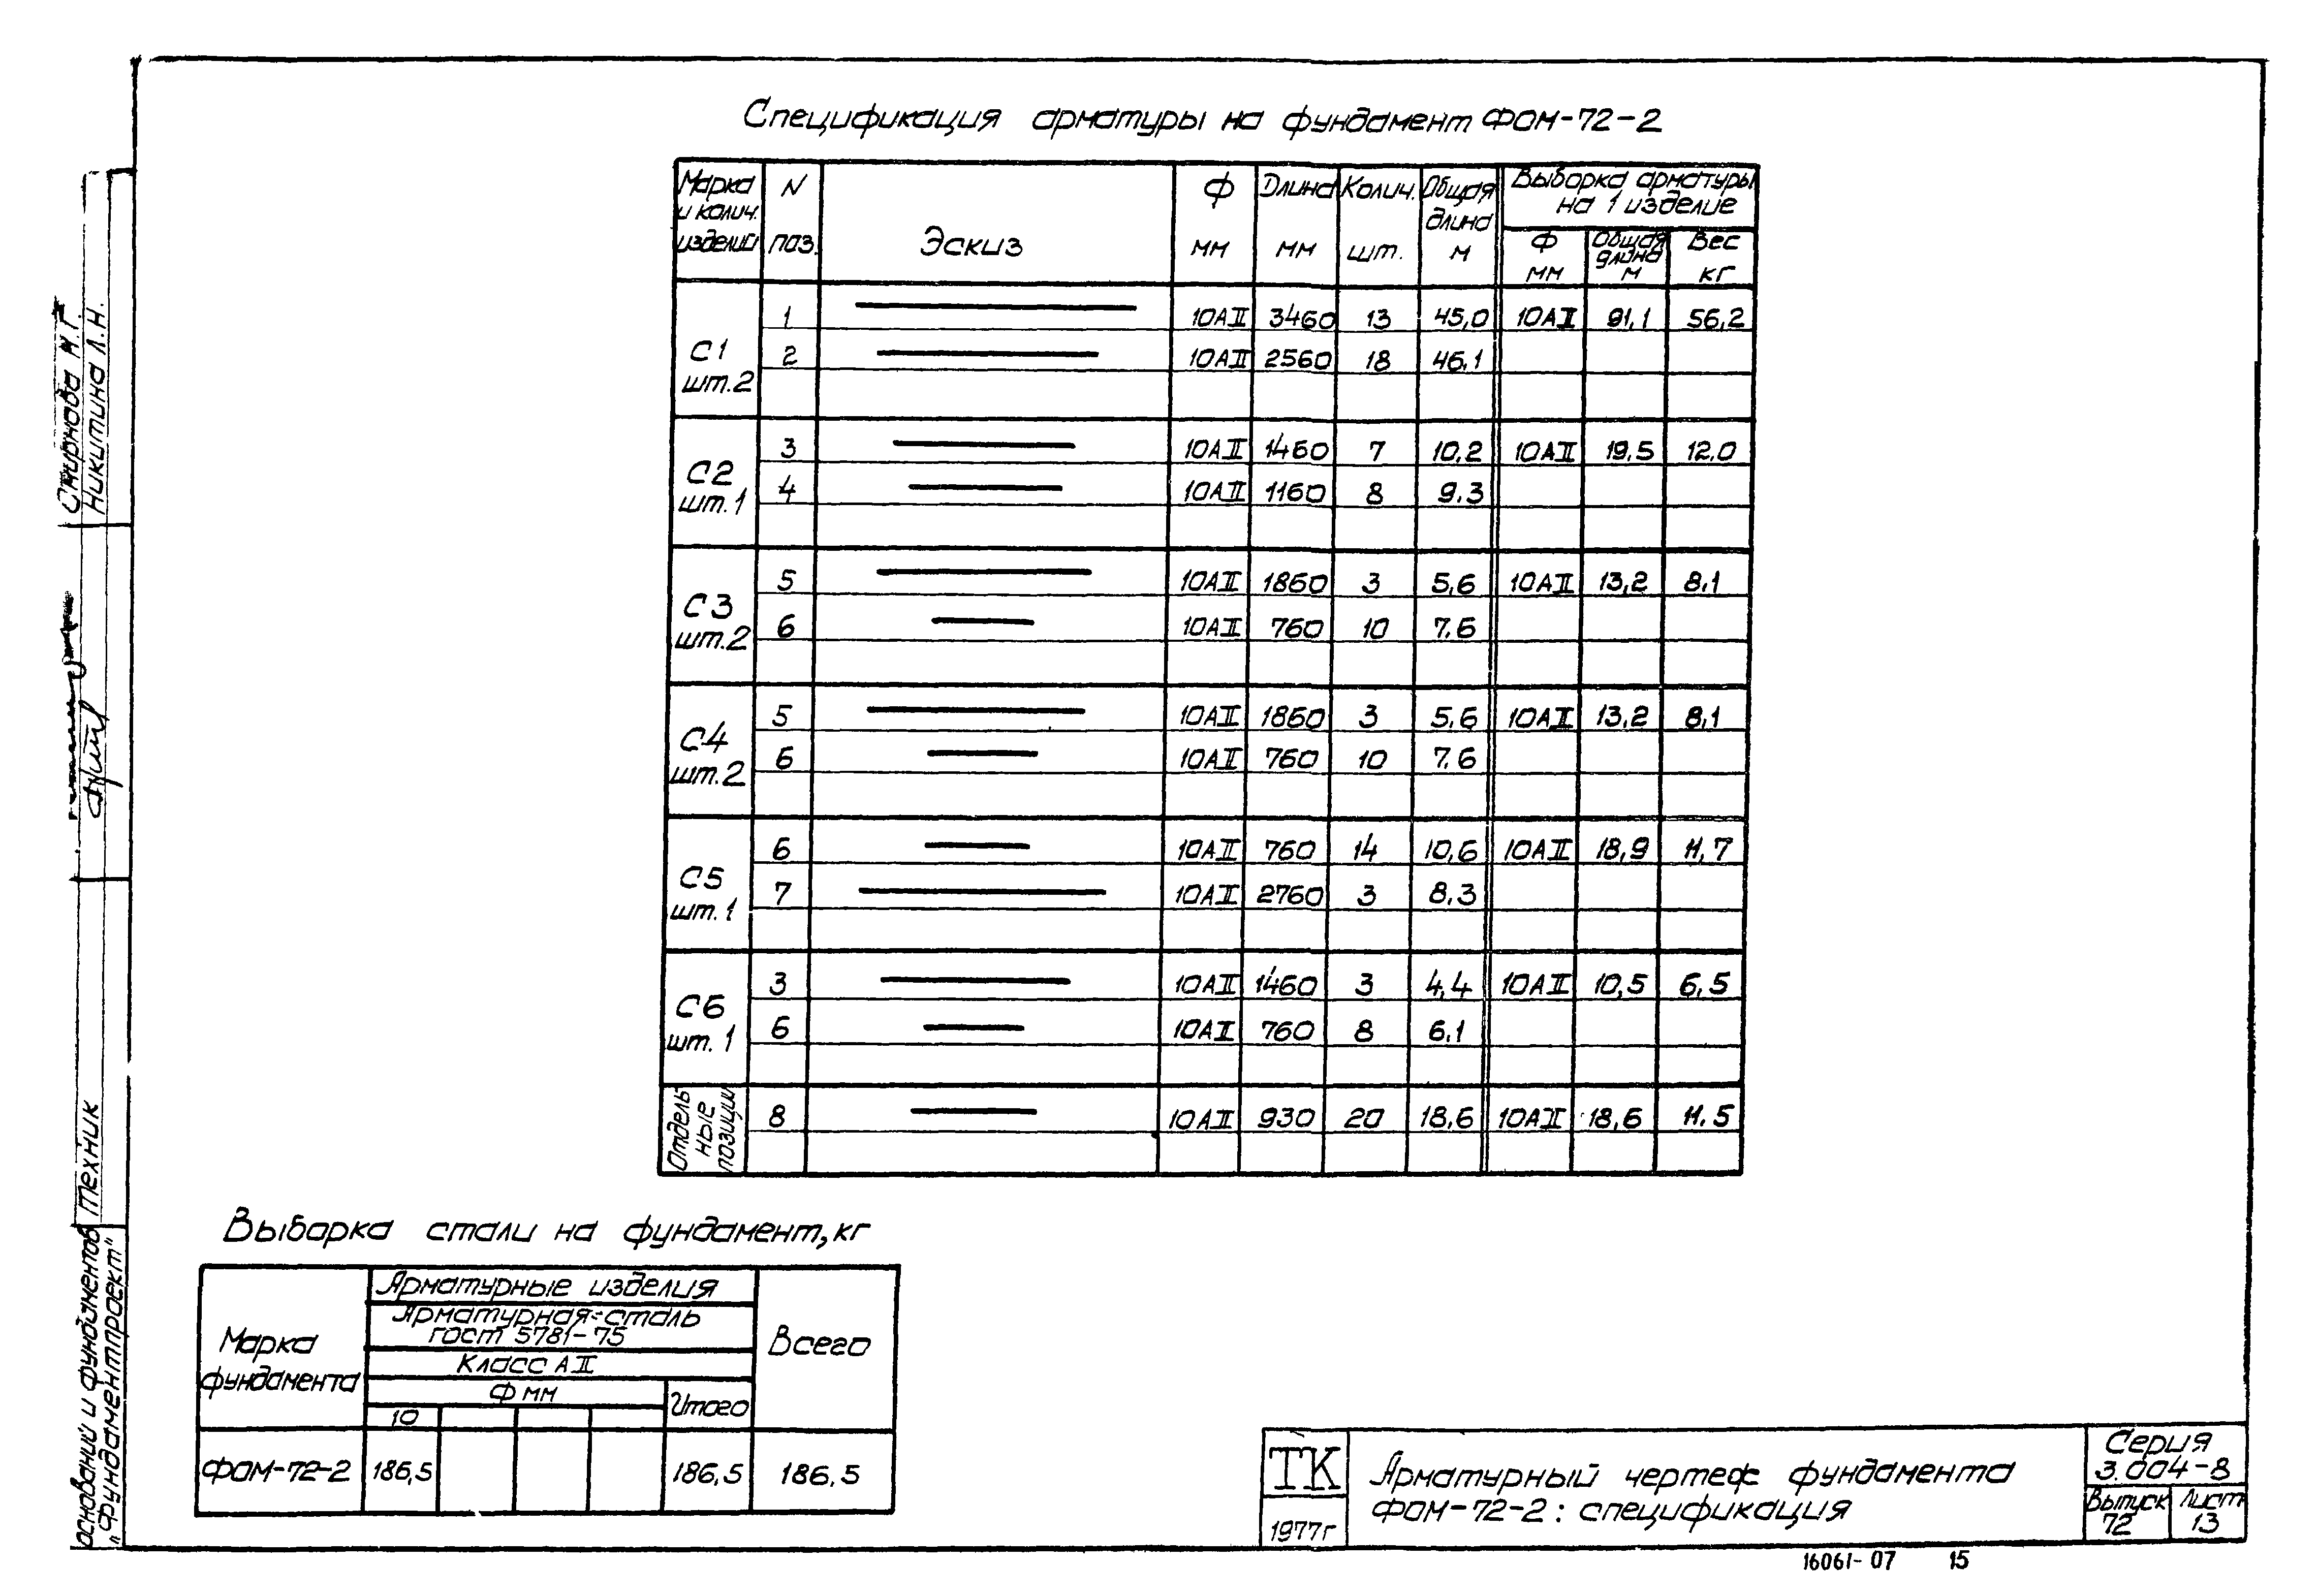 Спецификация арматуры на фундамент ФОМ-72-2
Марка и колич. изделий | N поз. | Эскиз | Ф мм | Длина мм | Колич. шт. | Общая длина м | Выборка арматуры на 1 изделие
Ф мм | Общая длина м | Вес кг
С1 шт.2
1 10АII 3460 13 45,0 10АII 91,1 56,2
2 10АII 2560 18 46,1
С2 шт.1
3 10АII 1460 7 10,2 10АII 19,5 12,0
4 10АII 1160 8 9,3
С3 шт.2
5 10АII 1860 3 5,6 10АII 13,2 8,1
6 10АII 760 10 7,6
С4 шт.2
5 10АII 1860 3 5,6 10АII 13,2 8,1
6 10АII 760 10 7,6
С5 шт.1
6 10АII 760 14 10,6 10АII 18,9 11,7
7 10АII 2760 3 8,3
С6 шт.1
3 10АII 1460 3 4,4 10АII 10,5 6,5
6 10АII 760 8 6,1
Отдель-
ные
позиции
8 10АII 930 20 18,6 10АII 18,6 11,5
Выборка стали на фундамент, кг
Марка фундамента
Арматурные изделия
Арматурная сталь
ГОСТ 5781-75
Класс АII
Ф мм
10
Итого
Всего
ФОМ-72-2 186,5 186,5 186,5
ТК
1977г
Арматурный чертеж фундамента
ФОМ-72-2: спецификация
Серия
3.004-8
Выпуск 72
Лист 13
16061-07 15
Смирнова Н.Г.
Никитина Л.Н.
Техник
оснований и фундаментов
"Фундаментпроект"